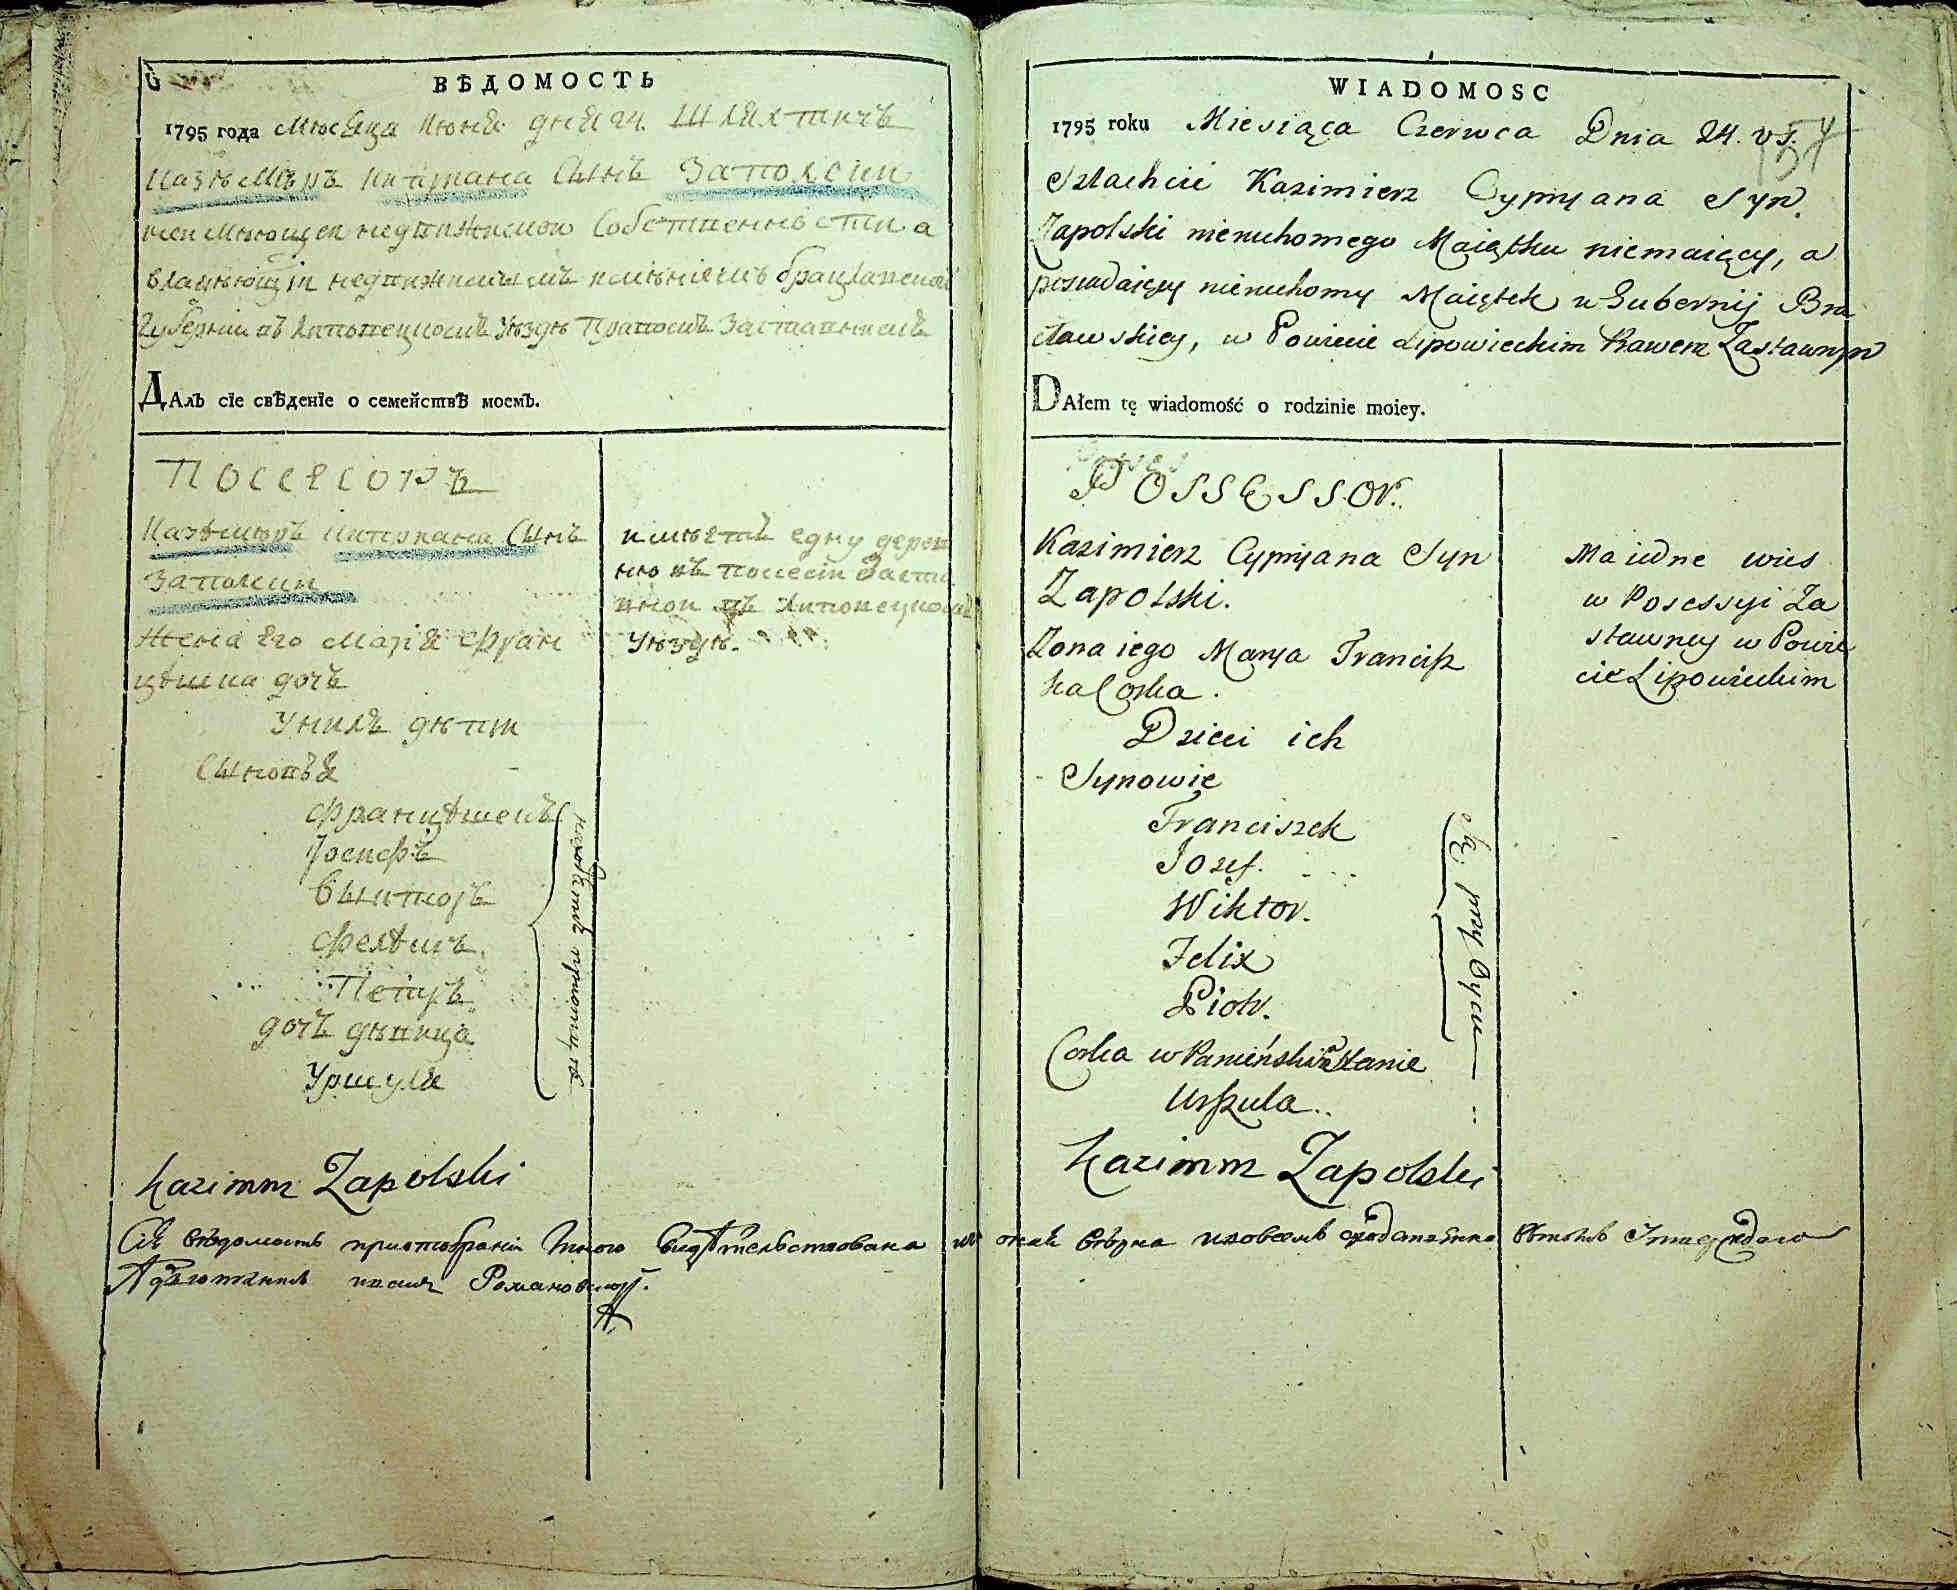 ВѢДОМОСТЬ
1795 года Мѣсяца Июня дня 24. Шляхтичъ
Казѣмѣръ Киприана Сынъ Заполскии
неимѣющеи недвижимои Собственности а
владѣющiи недвижимымъ имѣниемъ Брацлавскои
Губернiи въ Липовецкомъ Уѣздѣ Правомъ Заставнымъ
ДАлъ сіе свѣденіе о семействѣ моемъ.
Посессоръ
Казѣмѣръ Киприана Сынъ
Заполскии
Жена Его Марiя Фран
цѣшка дочъ
У нихъ дѣти
Сыновья
Францѣшекъ
Iосифъ
Выкторъ
Фелѣкъ
Петръ
дочъ дѣвица
Уршуля
при отцѣ
имѣетъ едну дерев
ню въ посесiи Заста
внои въ Липовецкомъ
Уѣздѣ.
Kazimirz Zapolski
WIADOMOSC
1795 roku Miesiąca Czerwca Dnia 24. v s.
Szlachcic Kazimierz Cypryana Syn
Zapolski nieruchomego Maiątku niemaiący, a
posiadaiący nieruchomy Maiątek w Gubernij Bra
cławskiey, w Powiecie Lipowieckim Prawem Zastawnym
DAłem tę wiadomość o rodzinie moiey.
157
POSSESSOR.
Kazimierz Cypryana Syn
Zapolski.
Zona iego Marya Francisz
ka Corka.
Dzieci ich
Synowie
Franciszek
Jozef.
Wiktor.
Felix
Piotr.
Corka w Panieńskim Stanie
Urszula..
są przy Oycu
Ma iedne wies
w Posessyi Za
stawney w Powie
cie Lipowieckim
Kazimirz Zapolski
Сiя вѣдомость при отобранiи мною свидѣтельствована
Романовскiй.